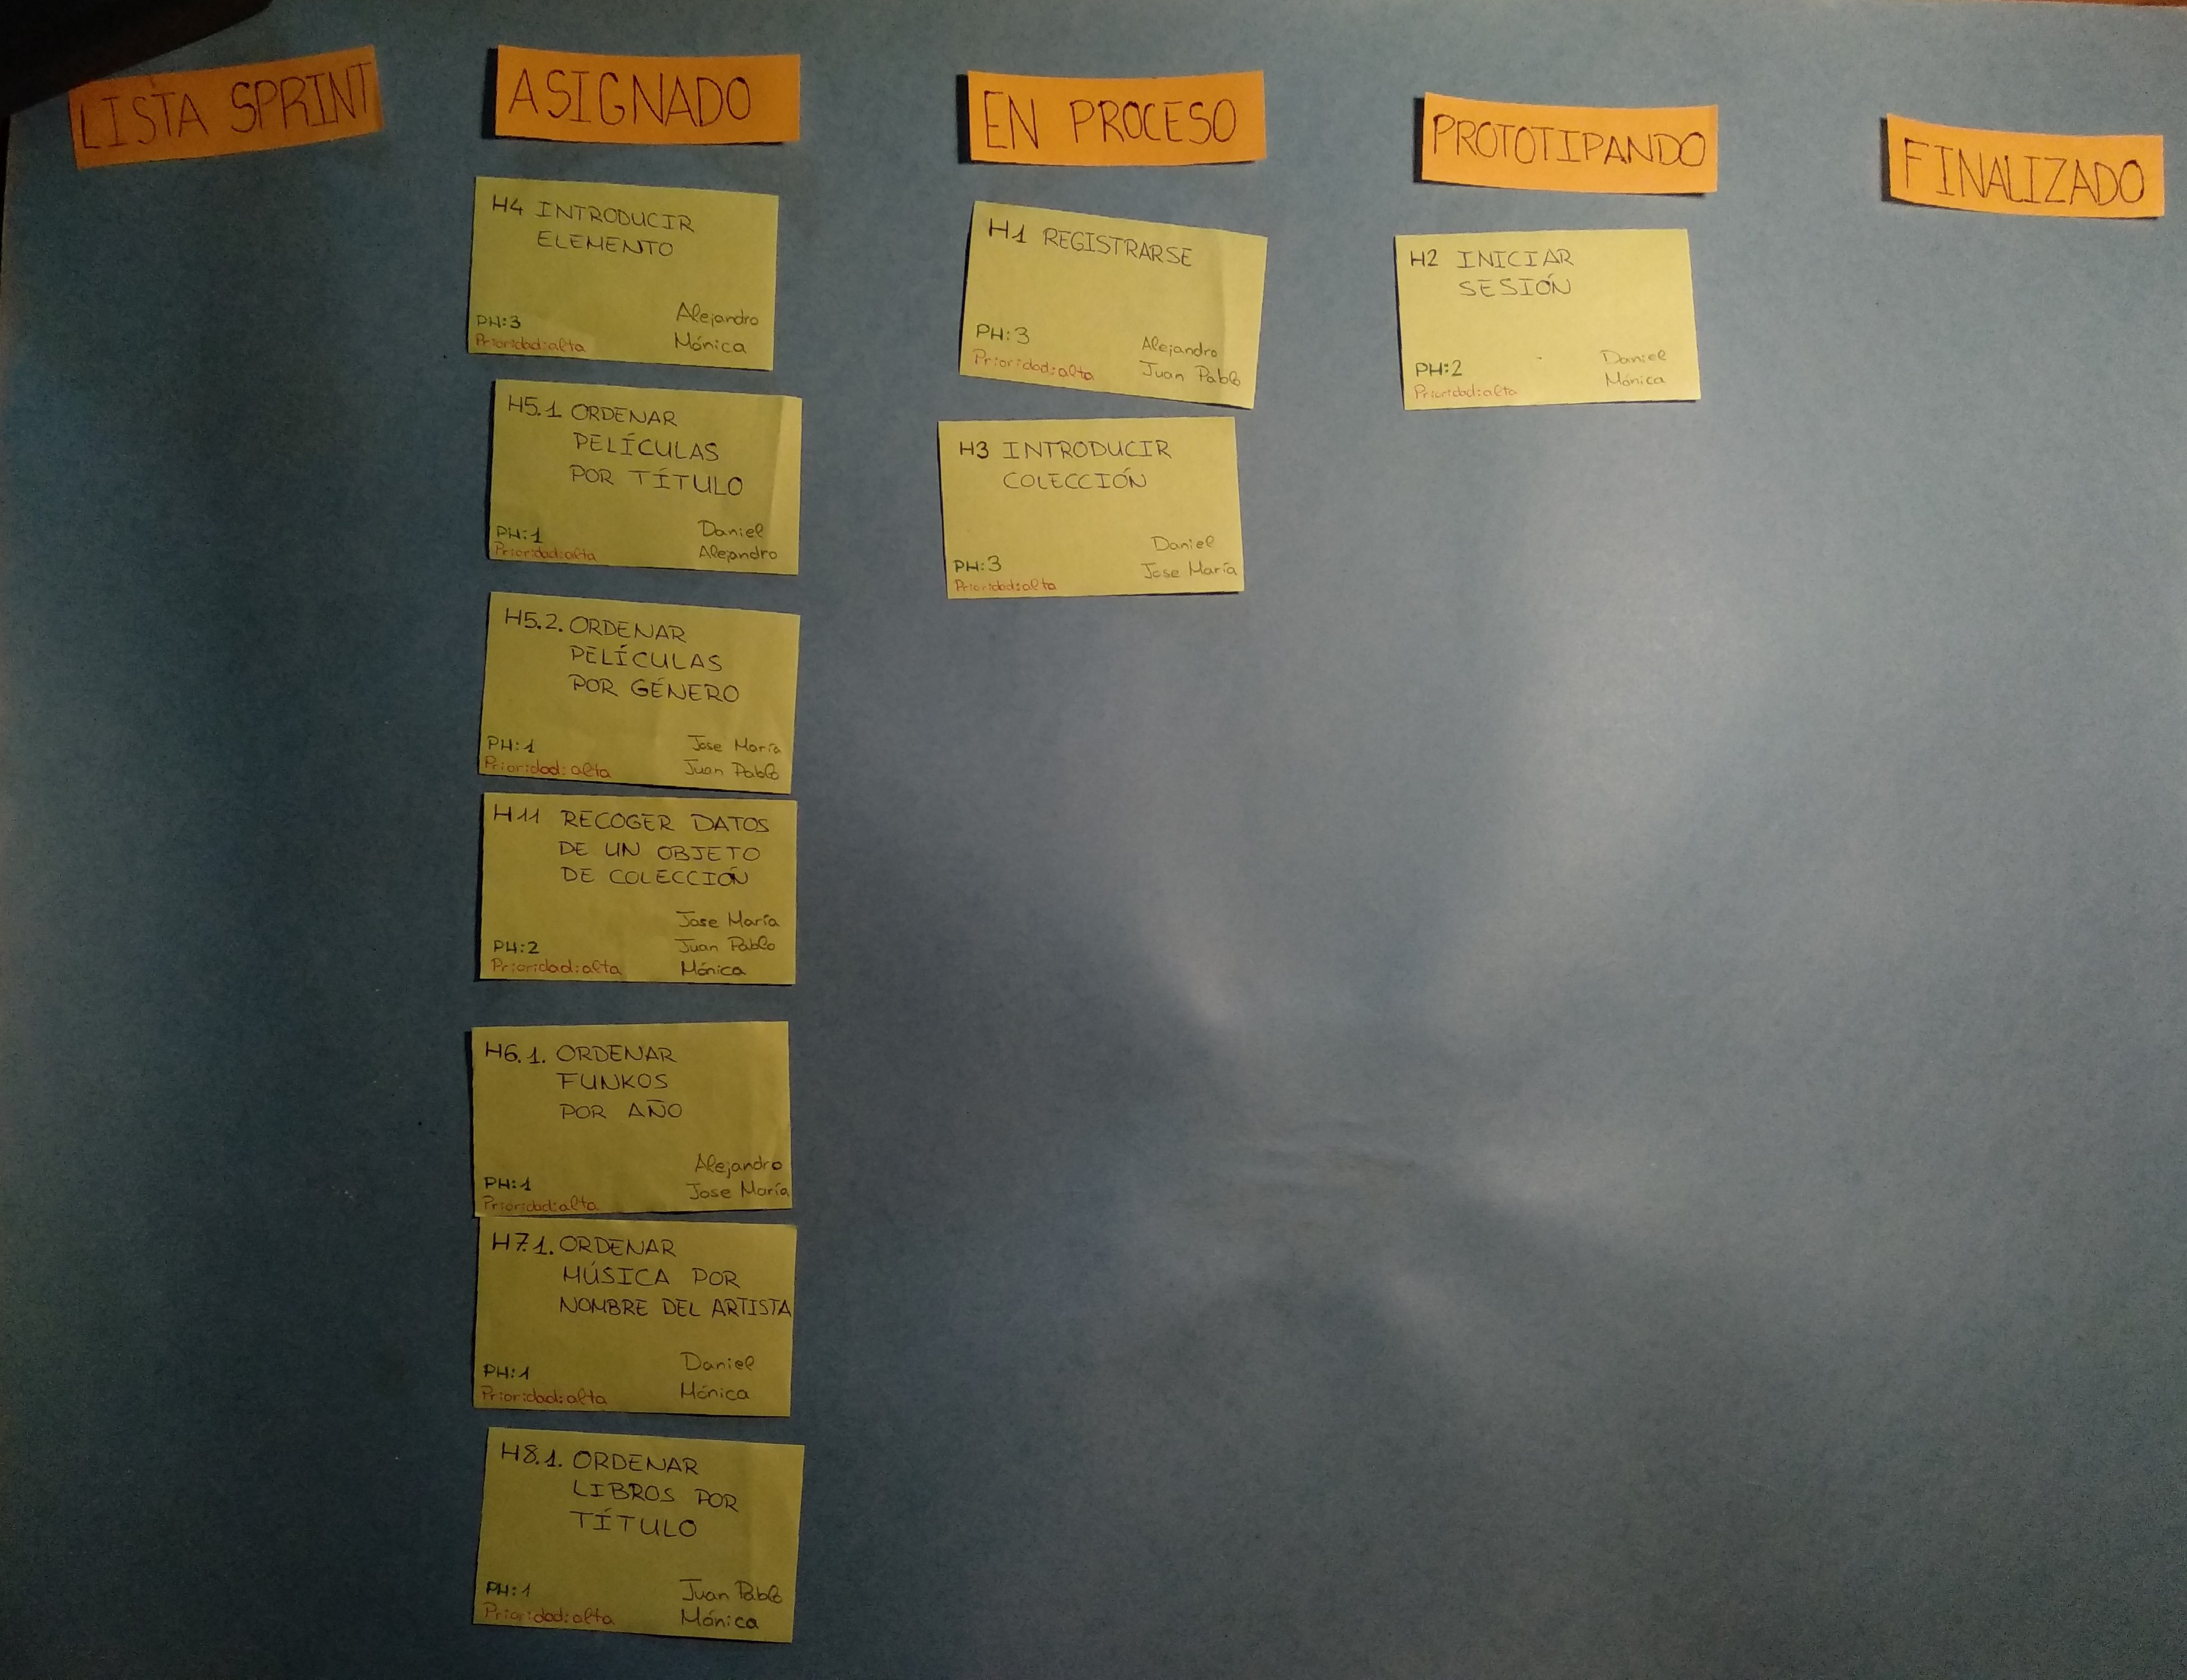 LISTA SPRINT
ASIGNADO
EN PROCESO
PROTOTIPANDO
FINALIZADO
H4 INTRODUCIR
ELEMENTO
PH:3
Prioridad:alta
Alejandro
Mónica
H5.1 ORDENAR
PELÍCULAS
POR TÍTULO
PH:1
Prioridad:alta
Daniel
Alejandro
H5.2. ORDENAR
PELÍCULAS
POR GÉNERO
PH:1
Prioridad:alta
Jose María
Juan Pablo
H11 RECOGER DATOS
DE UN OBJETO
DE COLECCIÓN
PH:2
Prioridad:alta
Jose María
Juan Pablo
Mónica
H6.1. ORDENAR
FUNKOS
POR AÑO
PH:1
Prioridad:alta
Alejandro
Jose María
H7.1. ORDENAR
MÚSICA POR
NOMBRE DEL ARTISTA
PH:1
Prioridad:alta
Daniel
Mónica
H8.1. ORDENAR
LIBROS POR
TÍTULO
PH:1
Prioridad:alta
Juan Pablo
Mónica
H1 REGISTRARSE
PH:3
Prioridad:alta
Alejandro
Juan Pablo
H3 INTRODUCIR
COLECCIÓN
PH:3
Prioridad:alta
Daniel
Jose María
H2 INICIAR
SESIÓN
PH:2
Prioridad:alta
Daniel
Mónica